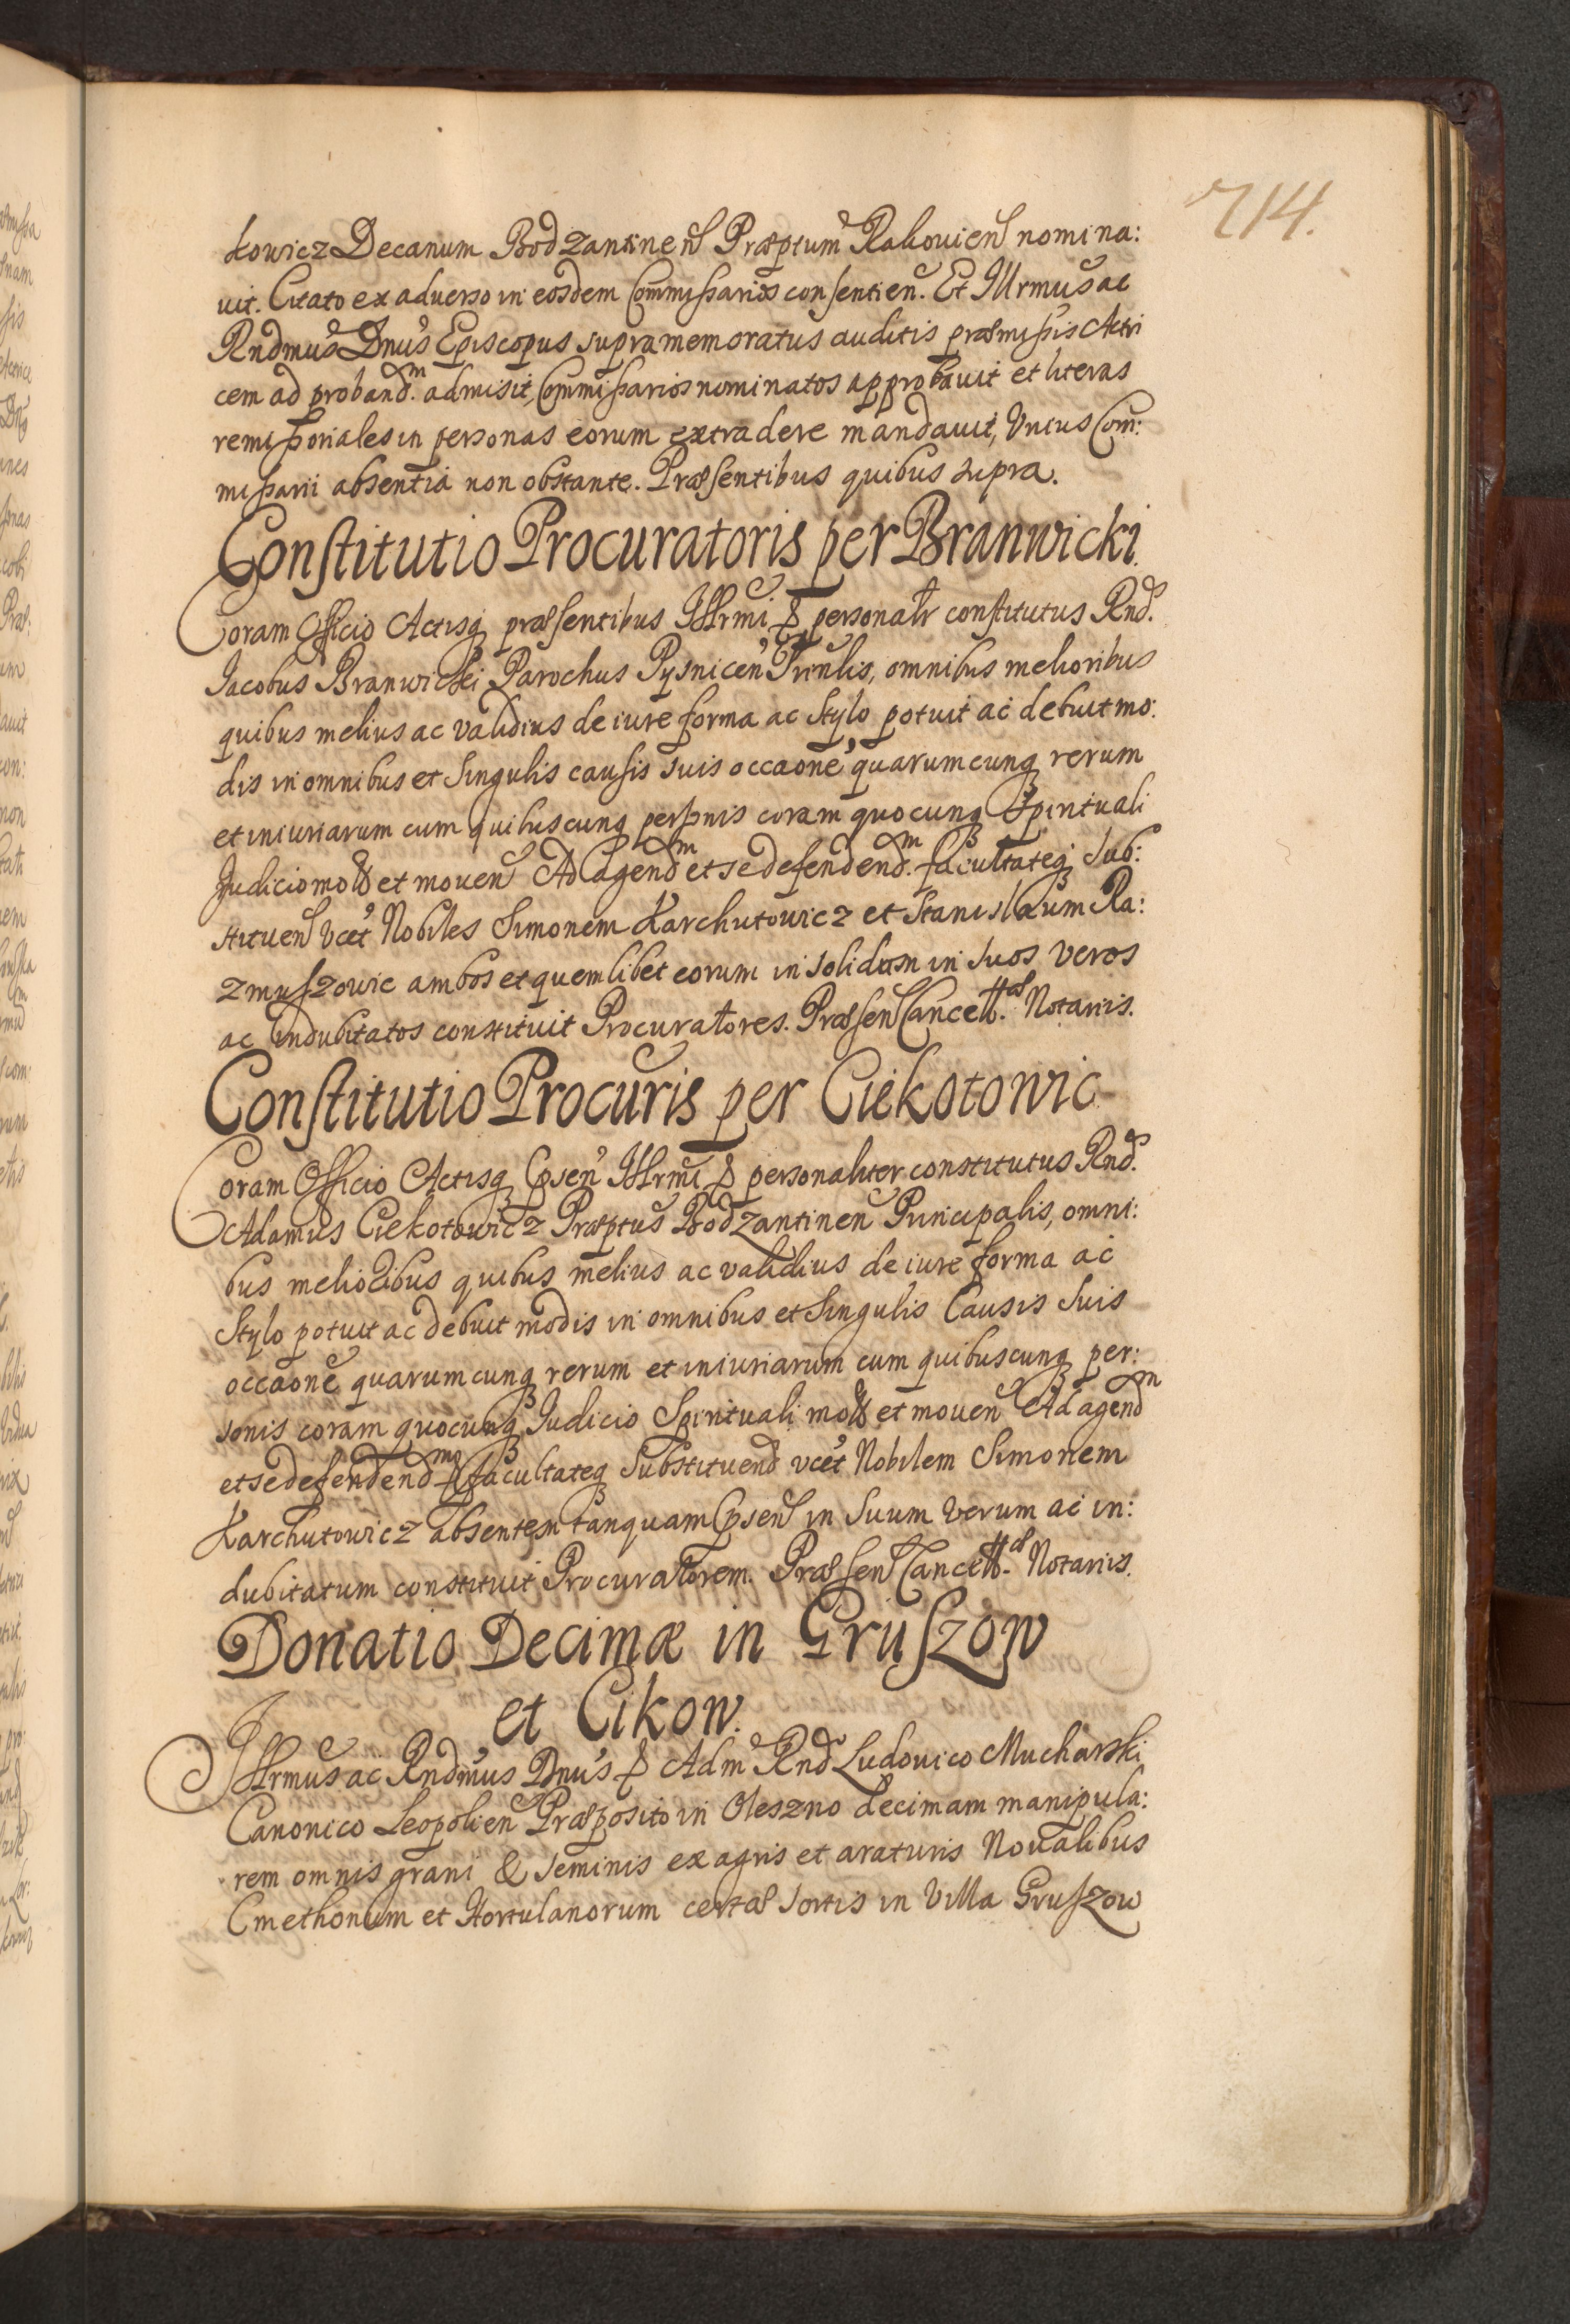 714.
kowicz Decanum Bodzantinen Præptum Rakouien nomina:
uit. Citato ex aduerso in eosdem Commissarios consentien. Et Illrmus ac
Rndmus Dnus Episcopus supramemoratus auditis præmissis Actri
cem ad proband.m admisit, Commissarios nominatos approbauit et literas
remissoriales in personas eorum extradere mandauit, Vnius Com:
missarii absentia non obstante. Præsentibus quibus supra.
Constitutio Procuratoris per Branwicki.
Coram Officio Actisq præsentibus Illrmi & personalr constitutus Rnd.
Iacobus Branwicki Parochus Pysnicen Prinlis, omnibus melioribus
quibus melius ac validius de iure forma ac Stylo potuit ac debuit mo:
dis in omnibus et Singulis causis suis occaone quarumcunq rerum
et iniuriarum cum quibuscunq personis coram quocunq Spirituali
Iudicio mot et mouen Ad agend.m et se defendend.m facultateq Sub:
stituen vcet Nobiles Simonem Karchutowicz et Stanislaum Ra:
zmuszowic ambos et quemlibet eorum in solidum in Suos Veros
ac Indubitatos constituit Procuratores. Præsen Cancell.æ Notariis.
Constitutio Procuris per Ciekotowic
Coram Officio Actisq psen Illrmi & personaliter constitutus Rnd.
Adamus Ciekotowicz Præptus Bodzantinen Principalis, omni:
bus melioribus quibus melius ac validius de iure forma ac
Stylo potuit ac debuit modis in omnibus et Singulis Causis Suis
occaone quarumcunq rerum et iniuriarum cum quibuscunq per:
sonis coram quocunq Iudicio Spirituali mot et mouen Ad agend.m
et se defendend.m facultateq Substituend vcet Nobilem Simonem
Karchutowicz absentem tanquam psen in Suum Verum ac in:
dubitatum constituit Procuratorem. Præsen Cancell.æ Notariis.
Donatio Decimæ in Gruszow
et Cikow.
Illrmus ac Rndmus Dnus & Adm Rnd Ludouico Mucharski
Canonico Leopolien Præposito in Oleszno decimam manipula:
rem omnis grani & seminis ex agris et araturis Noualibus
Cmethonum et Hortulanorum certæ Sortis in Villa Gruszow